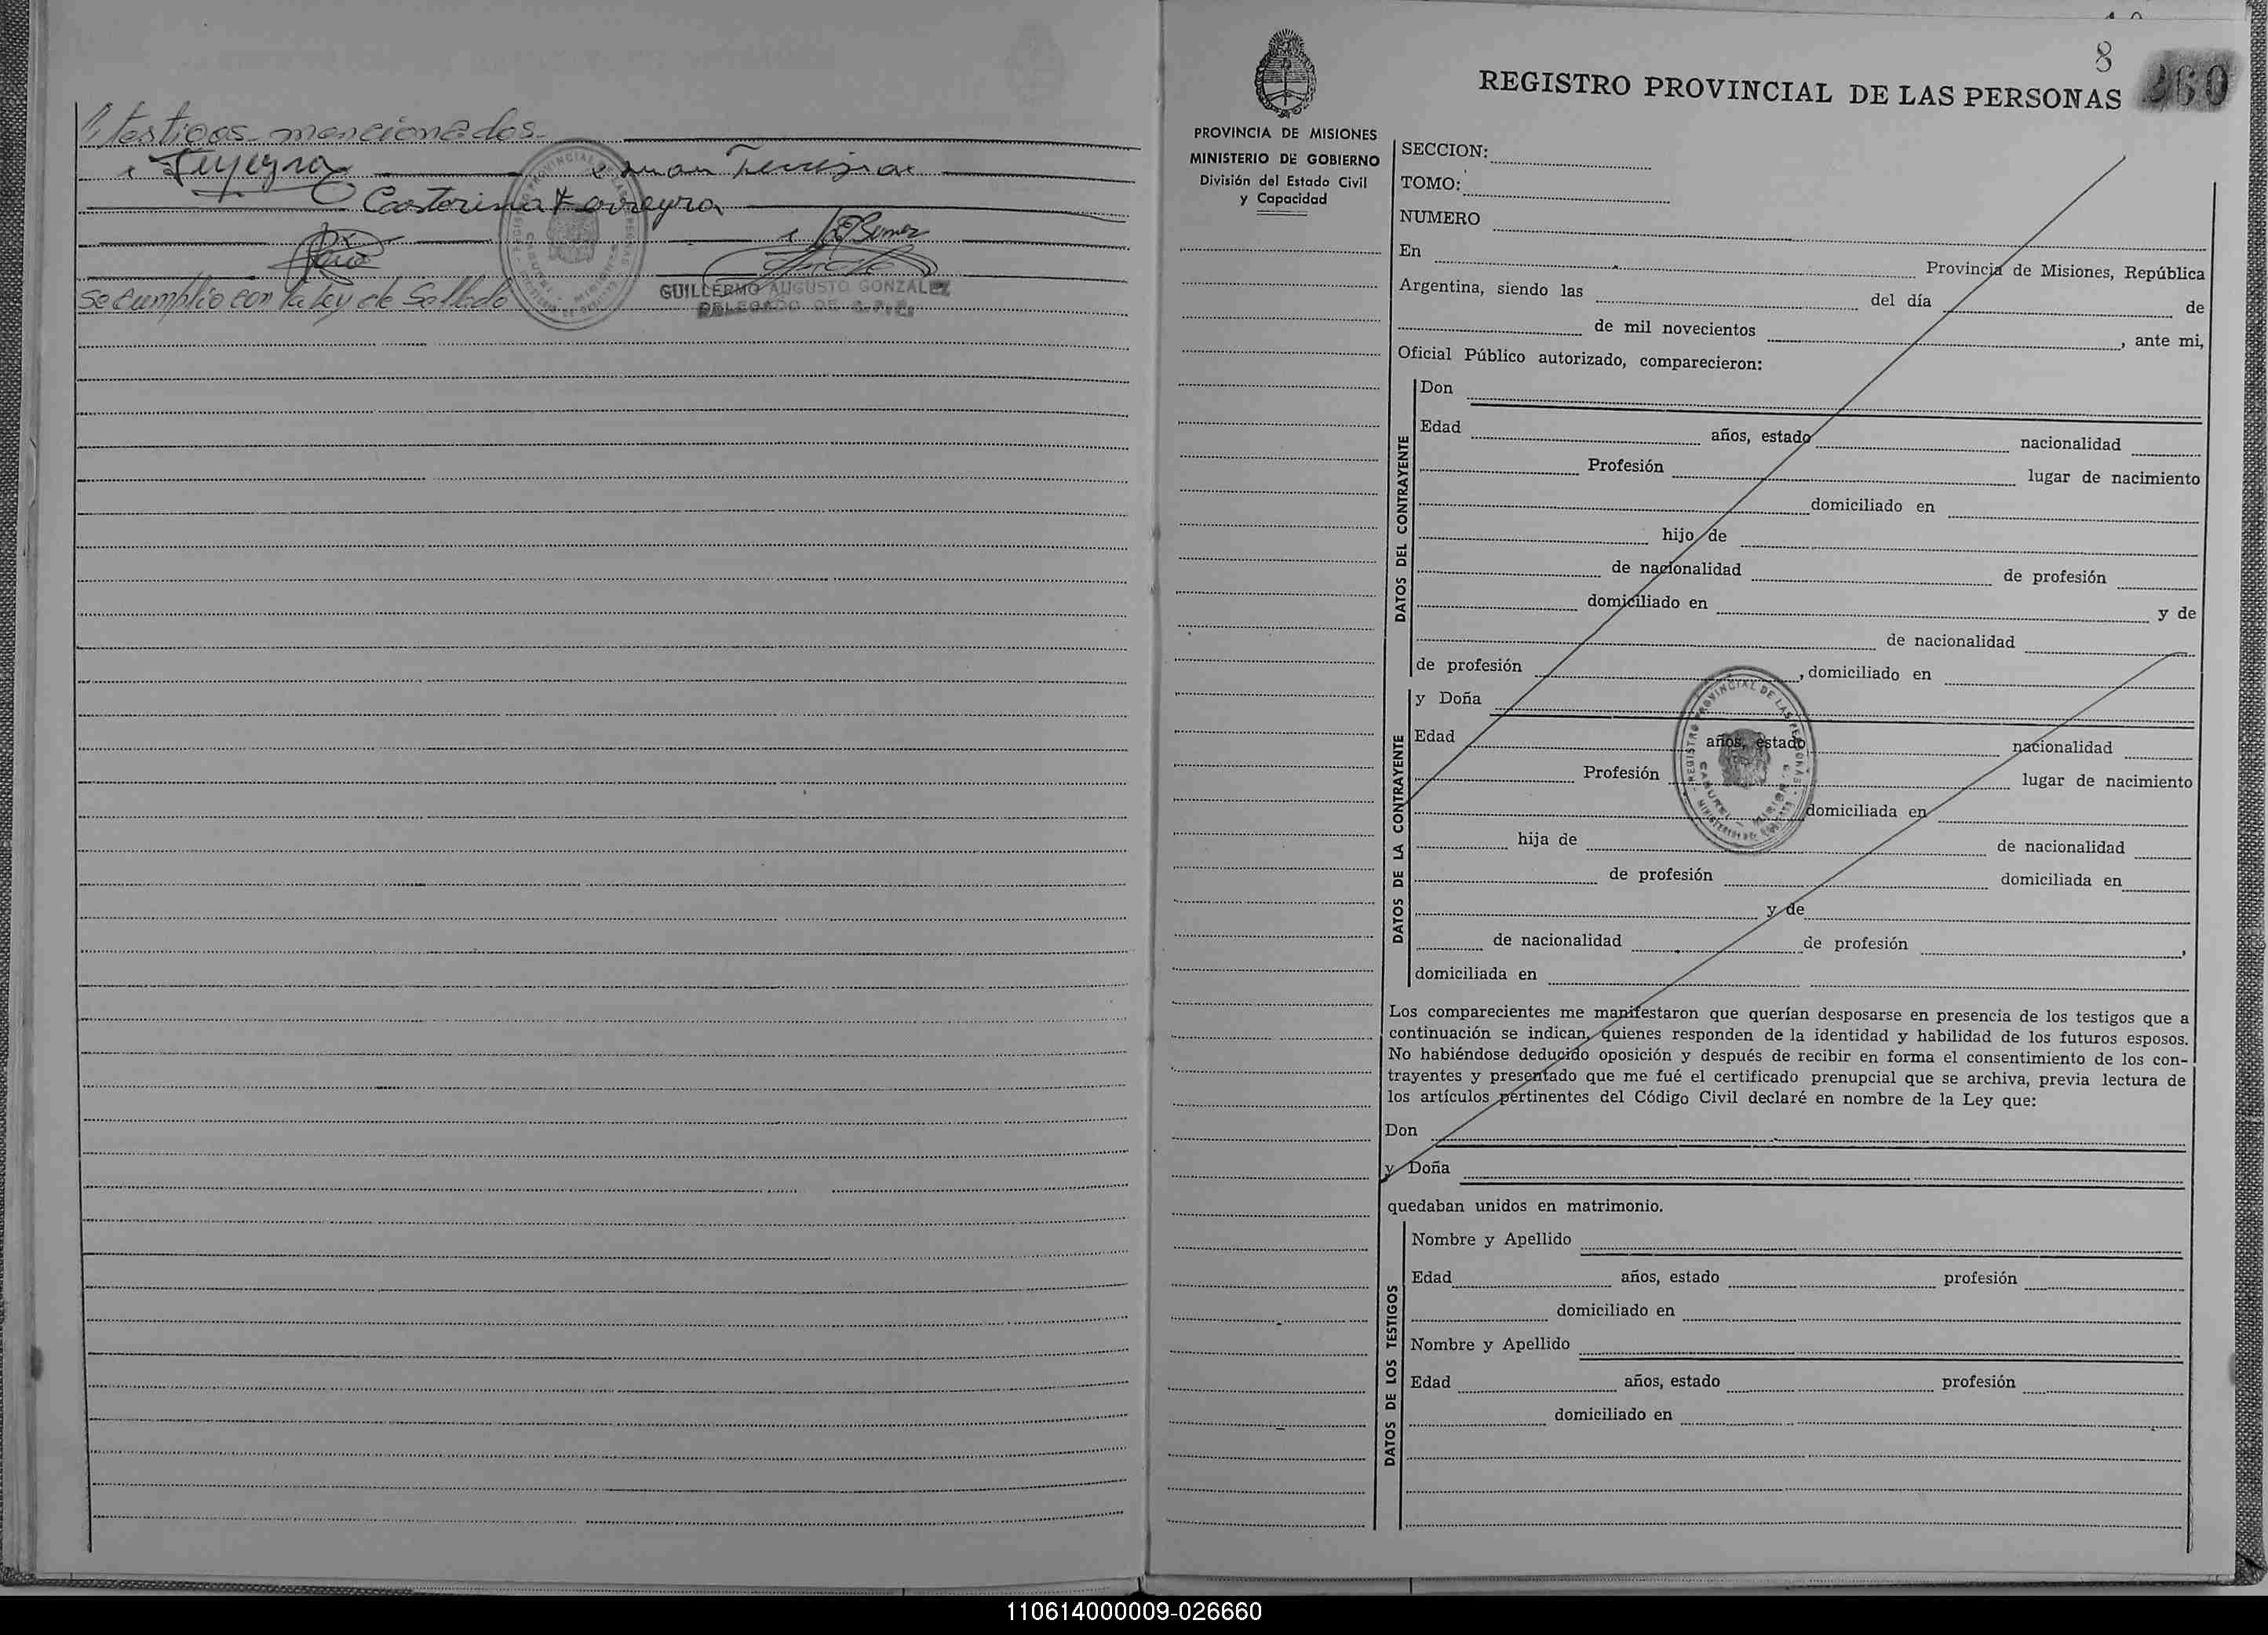 testigos mencionados.
Castorina Ferreyra
se cumplio con la ley de Sellado
GUILLERMO AUGUSTO GONZALEZ
DELEGADO DE
8
REGISTRO PROVINCIAL DE LAS PERSONAS 060
PROVINCIA DE MISIONES
MINISTERIO DE GOBIERNO
División del Estado Civil
y Capacidad
SECCION:
TOMO:
NUMERO
En Provincia de Misiones, República
Argentina, siendo las del día de
de mil novecientos , ante mi,
Oficial Público autorizado, comparecieron:
DATOS DEL CONTRAYENTE
Don
Edad años, estado nacionalidad
Profesión lugar de nacimiento
domiciliado en
hijo de
de nacionalidad de profesión
domiciliado en y de
de nacionalidad
de profesión , domiciliado en
DATOS DE LA CONTRAYENTE
y Doña
Edad años, estado nacionalidad
Profesión lugar de nacimiento
domiciliada en
hija de de nacionalidad
de profesión domiciliada en
y de
de nacionalidad de profesión ,
domiciliada en
REGISTRO PROVINCIAL DE LAS PERSONAS
Los comparecientes me manifestaron que querían desposarse en presencia de los testigos que a
continuación se indican, quienes responden de la identidad y habilidad de los futuros esposos.
No habiéndose deducido oposición y después de recibir en forma el consentimiento de los con-
trayentes y presentado que me fué el certificado prenupcial que se archiva, previa lectura de
los artículos pertinentes del Código Civil declaré en nombre de la Ley que:
Don
y Doña
quedaban unidos en matrimonio.
DATOS DE LOS TESTIGOS
Nombre y Apellido
Edad años, estado profesión
domiciliado en
Nombre y Apellido
Edad años, estado profesión
domiciliado en
110614000009-026660